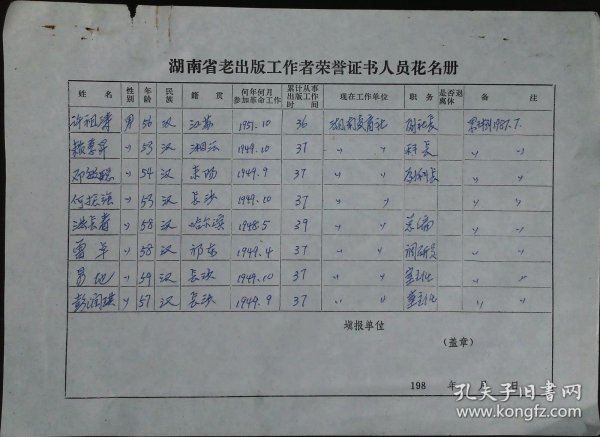 湖南省老出版工作者荣誉证书人员花名册
姓名 性别 年龄 民族 籍贯 何年何月参加革命工作 累计从事出版工作时间 现在工作单位 职务 是否退离休 备注
许祖涛 男 56 汉 江苏 1951.10 36 湖南教育社 副社长 累计到1987.7.
〃 53 汉 湘 1949.10 37 〃 〃 科长 〃 〃
邓 〃 54 汉 耒阳 1949.9 37 〃 〃 副科长 〃 〃
何振 〃 53 汉 长沙 1949.10 37 〃 〃 〃 〃
〃 58 汉 哈尔滨 1948.5 39 〃 〃 〃 〃
曹 〃 58 汉 祁东 1949.4 37 〃 〃 调研员 〃 〃
易地 〃 59 汉 长沙 1949.10 37 〃 〃 室主任 〃 〃
彭润琪 〃 57 汉 长沙 1949.9 37 〃 〃 室主任 〃 〃
填报单位
(盖章)
198 年 月 日
孔夫子旧书网
www.kongfz.com